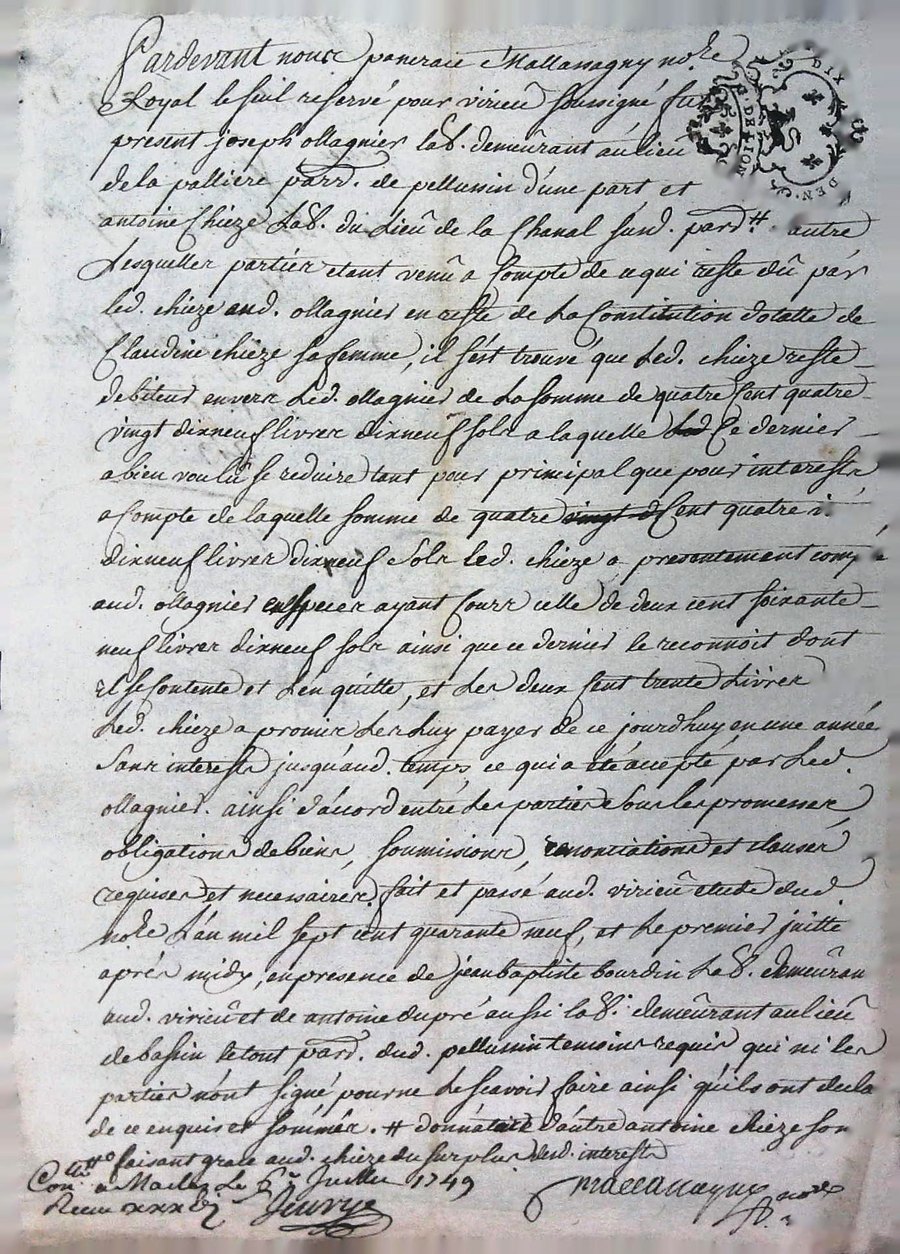 Pardevant nous pancrace Mallassagny no.re
Royal le seul reservé pour virieu soussigné fut
present joseph ollagnier lab.r demeurant au lieu
de la palliere parr. de pellussin d'une part et
antoine Chieze Lab.r du Lieu de la Chanal susd. par.d # autre
Lesquelles parties etant venû a Compte de ce qui reste dû par
led. chieze aud. ollagnier en reste de La Constitution dotalle de
Claudine chieze sa femme, il s'est trouvé que Led. chieze reste
debiteur envers Led. ollagnier de La somme de quatre Cent quatre
vingt dixneuf livres dixneuf sols a laquelle Led Ce dernier
a bien voulû se reduire tant pour principal que pour interests
a Compte de laquelle somme de quatre vingt d Cent quatre v.
dixneuf livres dixneuf sols led. chieze a presentement comp
aud. ollagnier en especes ayant Cours celle de deux cent soixante
neuf livres dixneuf sols ainsi que ce dernier le reconnoit dont
il se Contente et L'en quitte, et Les deux Cent trente Livres
Led. chieze a promis Les Luy payer de ce jourdhuy en une année
sans interests jusqu'aud. temps ce qui a été accepté par Led.
ollagnier. ainsi d'accord entre Les parties sous les promesses
obligations de biens, soumissions, renonciations et clauses
requises et necessaires. fait et passé aud. virieu etude dud
no.re L'an mil sept cent quarante neuf, et Le premier juille
aprés midy, en presence de jean baptiste bourdin Lab.r demeuran
aud. virieu et de antoine dupré aussi lab.r demeurant au lieu
de bassin le tout par.d. dud. pellussin temoins requis qui ni les
parties n'ont signé pour ne Le scavoir faire ainsi qu'ils ont decla
de ce enquis et sommés. # donnataire d'autre antoine chieze son
#o faisant grace aud. chieze du surplus desd. interests
Con.lé a Maclas Le 5.e Juillet 1749
Recu xxx
Mallassagny no.re
DIX
DEN.
G. DE LION